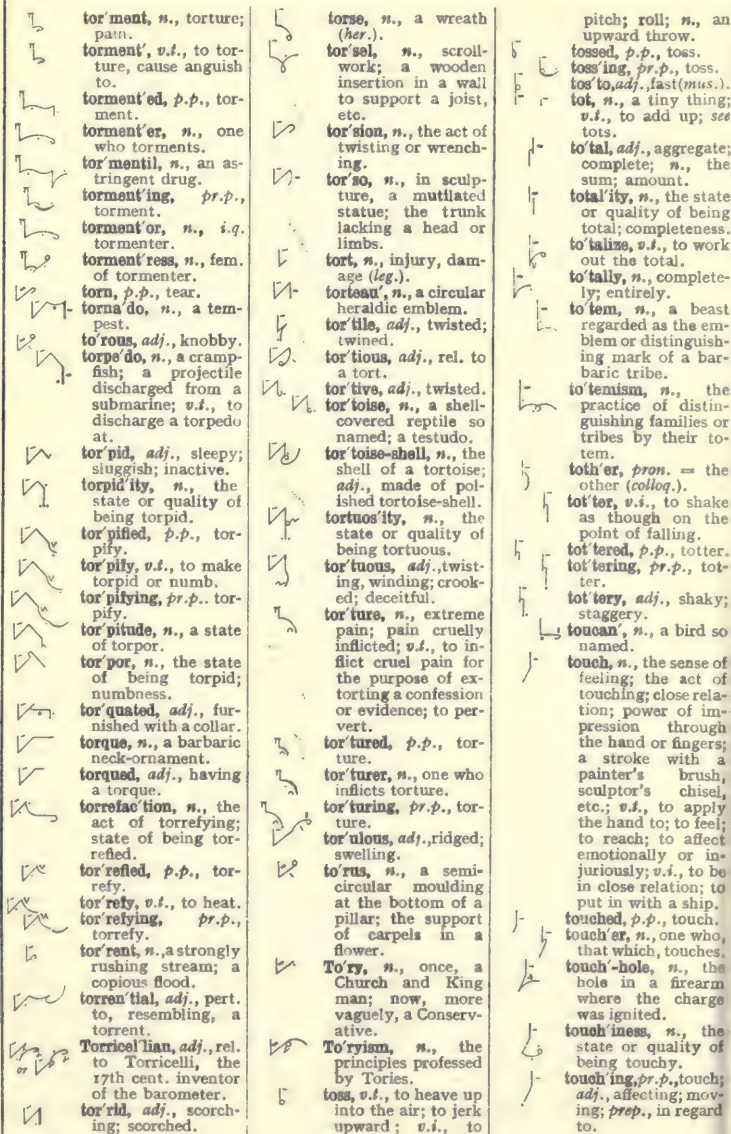 tor'ment, n., torture;
pain.
torment', v.t., to tor-
ture, cause anguish
to.
torment'ed, p.p., tor-
ment.
torment'er, n., one
who torments.
tor'mentil, n., an as-
tringent drug.
torment'ing, pr.p.,
torment.
torment'or, n., i.q.
tormenter.
torment'ress, n., fem.
of tormenter.
torn, p.p., tear.
torna'do, n., a tem-
pest.
to'rous, adj., knobby.
torpe'do, n., a cramp-
fish; a projectile
discharged from a
submarine; v.i., to
discharge a torpedo
at.
tor'pid, adj., sleepy;
sluggish; inactive.
torpid'ity, n., the
state or quality of
being torpid.
tor'pified, p.p., tor-
pify.
tor'pify, v.t., to make
torpid or numb.
tor'pifying, pr.p.. tor-
pify.
tor'pitude, n., a state
of torpor.
tor'por, n., the state
of being torpid;
numbness.
tor'quated, adj., fur-
nished with a collar.
torque, n., a barbaric
neck-ornament.
torqued, adj., having
a torque.
torrefac'tion, n., the
act of torrefying;
state of being tor-
refied.
tor'refied, p.p., tor-
refy.
tor'refy, v.t., to heat.
tor'refying, pr.p.,
torrefy.
tor'rent, n., a strongly
rushing stream; a
copious flood.
torren'tial, adj., pert.
to, resembling, a
torrent.
or
Torricel'lian, adj., rel.
to Torricelli, the
17th cent. inventor
of the barometer.
tor'rid, adj., scorch-
ing; scorched.
torse, n., a wreath
(her.).
tor'sel, n., scroll-
work; a wooden
insertion in a wall
to support a joist,
etc.
tor'sion, n., the act of
twisting or wrench-
ing.
tor'so, n., in sculp-
ture, a mutilated
statue; the trunk
lacking a head or
limbs.
tort, n., injury, dam-
age (leg.).
torteau', n., a circular
heraldic emblem.
tor'tile, adj., twisted;
twined.
tor'tious, adj., rel. to
a tort.
tor'tive, adj., twisted.
tor'toise, n., a shell-
covered reptile so
named; a testudo.
tor'toise-shell, n., the
shell of a tortoise;
adj., made of pol-
ished tortoise-shell.
tortuos'ity, n., the
state or quality of
being tortuous.
tor'tuous, adj., twist-
ing, winding; crook-
ed; deceitful.
tor'ture, n., extreme
pain; pain cruelly
inflicted; v.t., to in-
flict cruel pain for
the purpose of ex-
torting a confession
or evidence; to per-
vert.
tor'tured, p.p., tor-
ture.
tor'turer, n., one who
inflicts torture.
tor'turing, pr.p., tor-
ture.
tor'ulous, adj., ridged;
swelling.
to'rus, n., a semi-
circular moulding
at the bottom of a
pillar; the support
of carpels in a
flower.
To'ry, n., once, a
Church and King
man; now, more
vaguely, a Conserv-
ative.
To'ryism, n., the
principles professed
by Tories.
toss, v.t., to heave up
into the air; to jerk
upward; v.i., to
pitch; roll; n., an
upward throw.
tossed, p.p., toss.
toss'ing, pr.p., toss.
tos'to, adj., fast (mus.).
tot, n., a tiny thing;
v.t., to add up; see
tots.
to'tal, adj., aggregate;
complete; n., the
sum; amount.
total'ity, n., the state
or quality of being
total; completeness.
to'talize, v.t., to work
out the total.
to'tally, n., complete-
ly; entirely.
to'tem, n., a beast
regarded as the em-
blem or distinguish-
ing mark of a bar-
baric tribe.
to'temism, n., the
practice of distin-
guishing families or
tribes by their to-
tem.
toth'er, pron. = the
other (colloq.).
tot'ter, v.i., to shake
as though on the
point of falling.
tot'tered, p.p., totter.
tot'tering, pr.p., tot-
ter.
tot'tery, adj., shaky;
staggery.
toucan', n., a bird so
named.
touch, n., the sense of
feeling; the act of
touching; close rela-
tion; power of im-
pression through
the hand or fingers;
a stroke with a
painter's brush,
sculptor's chisel,
etc.; v.t., to apply
the hand to; to feel;
to reach; to affect
emotionally or in-
juriously; v.i., to be
in close relation; to
put in with a ship.
touched, p.p., touch.
touch'er, n., one who,
that which, touches.
touch'-hole, n., the
hole in a firearm
where the charge
was ignited.
touch'iness, n., the
state or quality of
being touchy.
touch'ing, pr.p., touch;
adj., affecting; mov-
ing; prep., in regard
to.